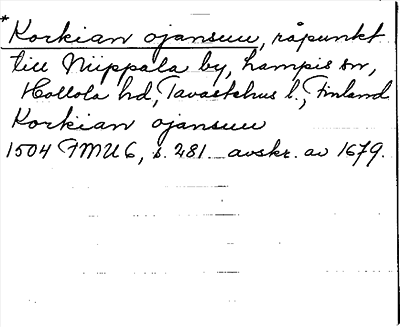 * Korkian ojansuu, råpunkt
till Niippala by, Lampis sn,
Hollola hd, Tavastehus l., Finland
Korkian ojansuu
1504 FMU 6, s. 281. avskr. av 1679.